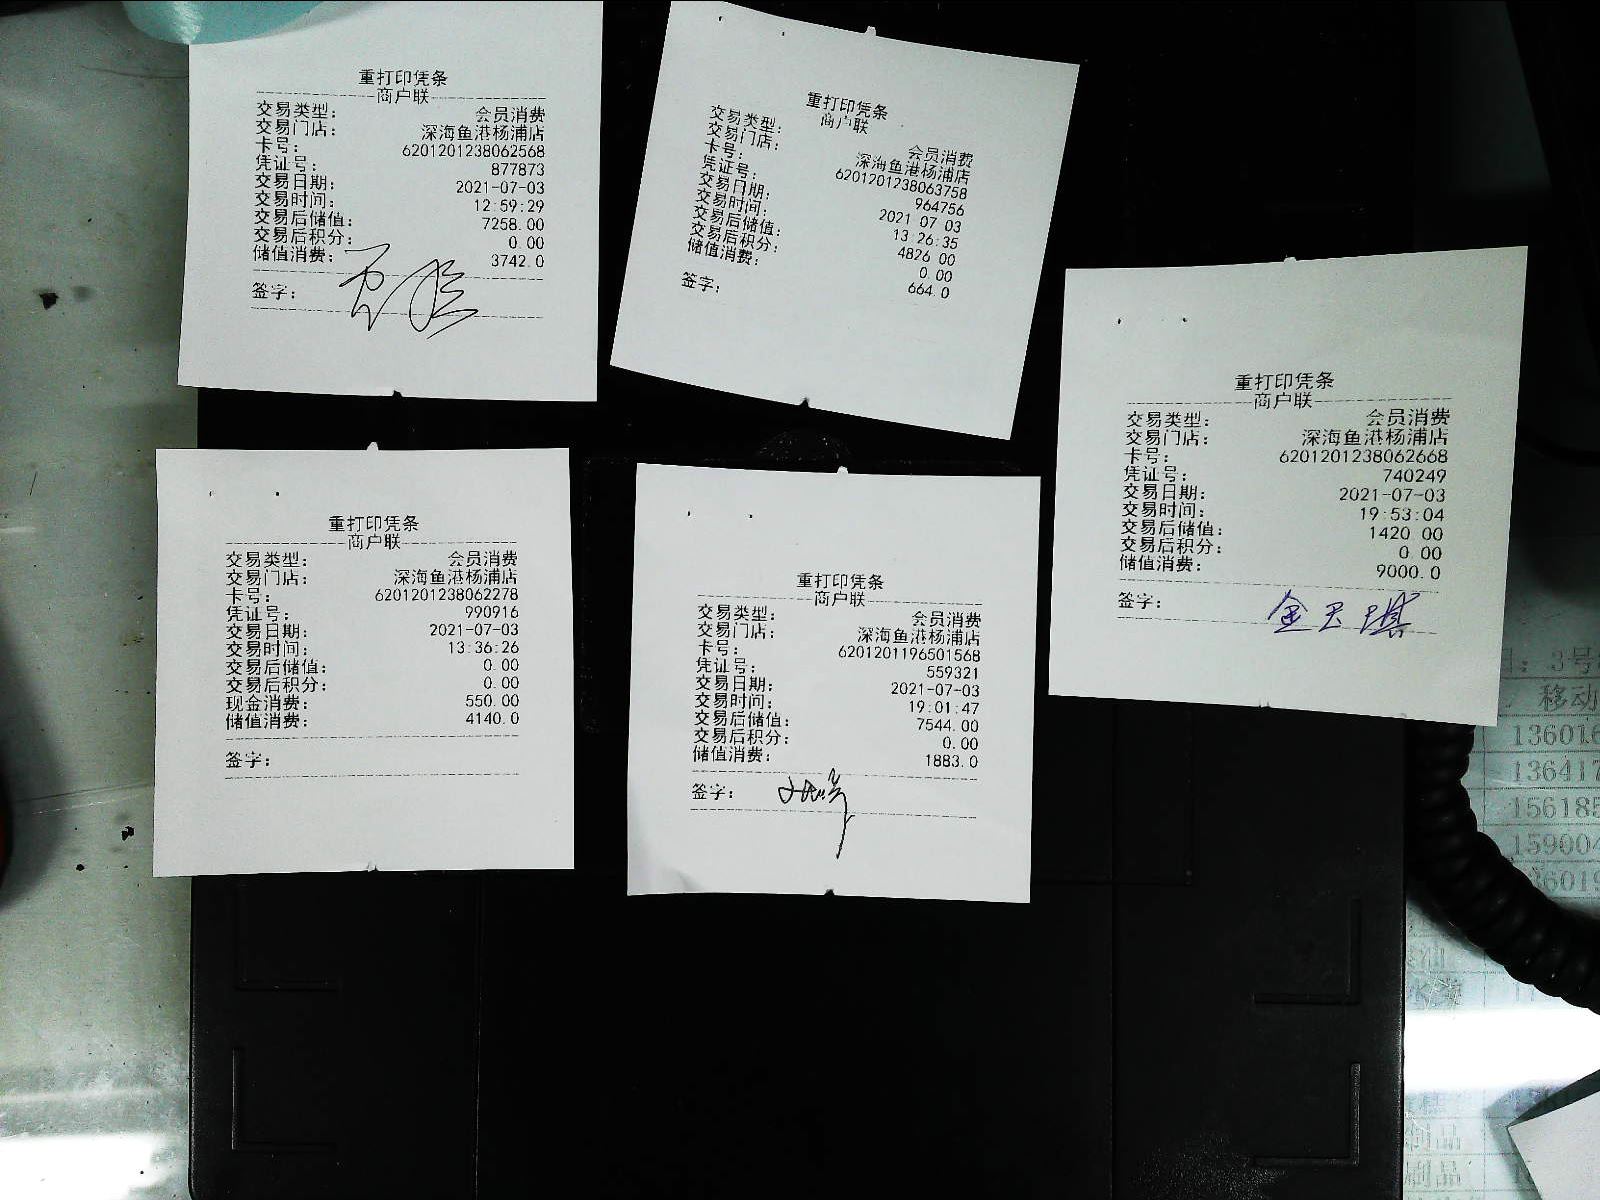 重打印凭条
商户联
交易类型： 会员消费
交易门店： 深海鱼港杨浦店
卡号： 6201201238062568
凭证号： 877873
交易日期： 2021-07-03
交易时间： 12:59:29
交易后储值： 7258.00
交易后积分： 0.00
储值消费： 3742.0
签字：
重打印凭条
商户联
交易类型： 会员消费
交易门店： 深海鱼港杨浦店
卡号： 6201201238063758
凭证号： 964756
交易日期： 2021 07 03
交易时间： 13:26:35
交易后储值： 4826 00
交易后积分： 0.00
储值消费： 664.0
签字：
重打印凭条
商户联
交易类型： 会员消费
交易门店： 深海鱼港杨浦店
卡号： 6201201238062668
凭证号： 740249
交易日期： 2021-07-03
交易时间： 19:53:04
交易后储值： 1420 00
交易后积分： 0 00
储值消费： 9000.0
签字：
重打印凭条
商户联
交易类型： 会员消费
交易门店： 深海鱼港杨浦店
卡号： 6201201238062278
凭证号： 990916
交易日期： 2021-07-03
交易时间： 13:36:26
交易后储值： 0.00
交易后积分： 0.00
现金消费： 550.00
储值消费： 4140.0
签字：
重打印凭条
商户联
交易类型： 会员消费
交易门店： 深海鱼港杨浦店
卡号： 6201201196501568
凭证号： 559321
交易日期： 2021-07-03
交易时间： 19:01:47
交易后储值： 7544.00
交易后积分： 0.00
储值消费： 1883.0
签字：
3号
移动
136016
136417
156185
159004